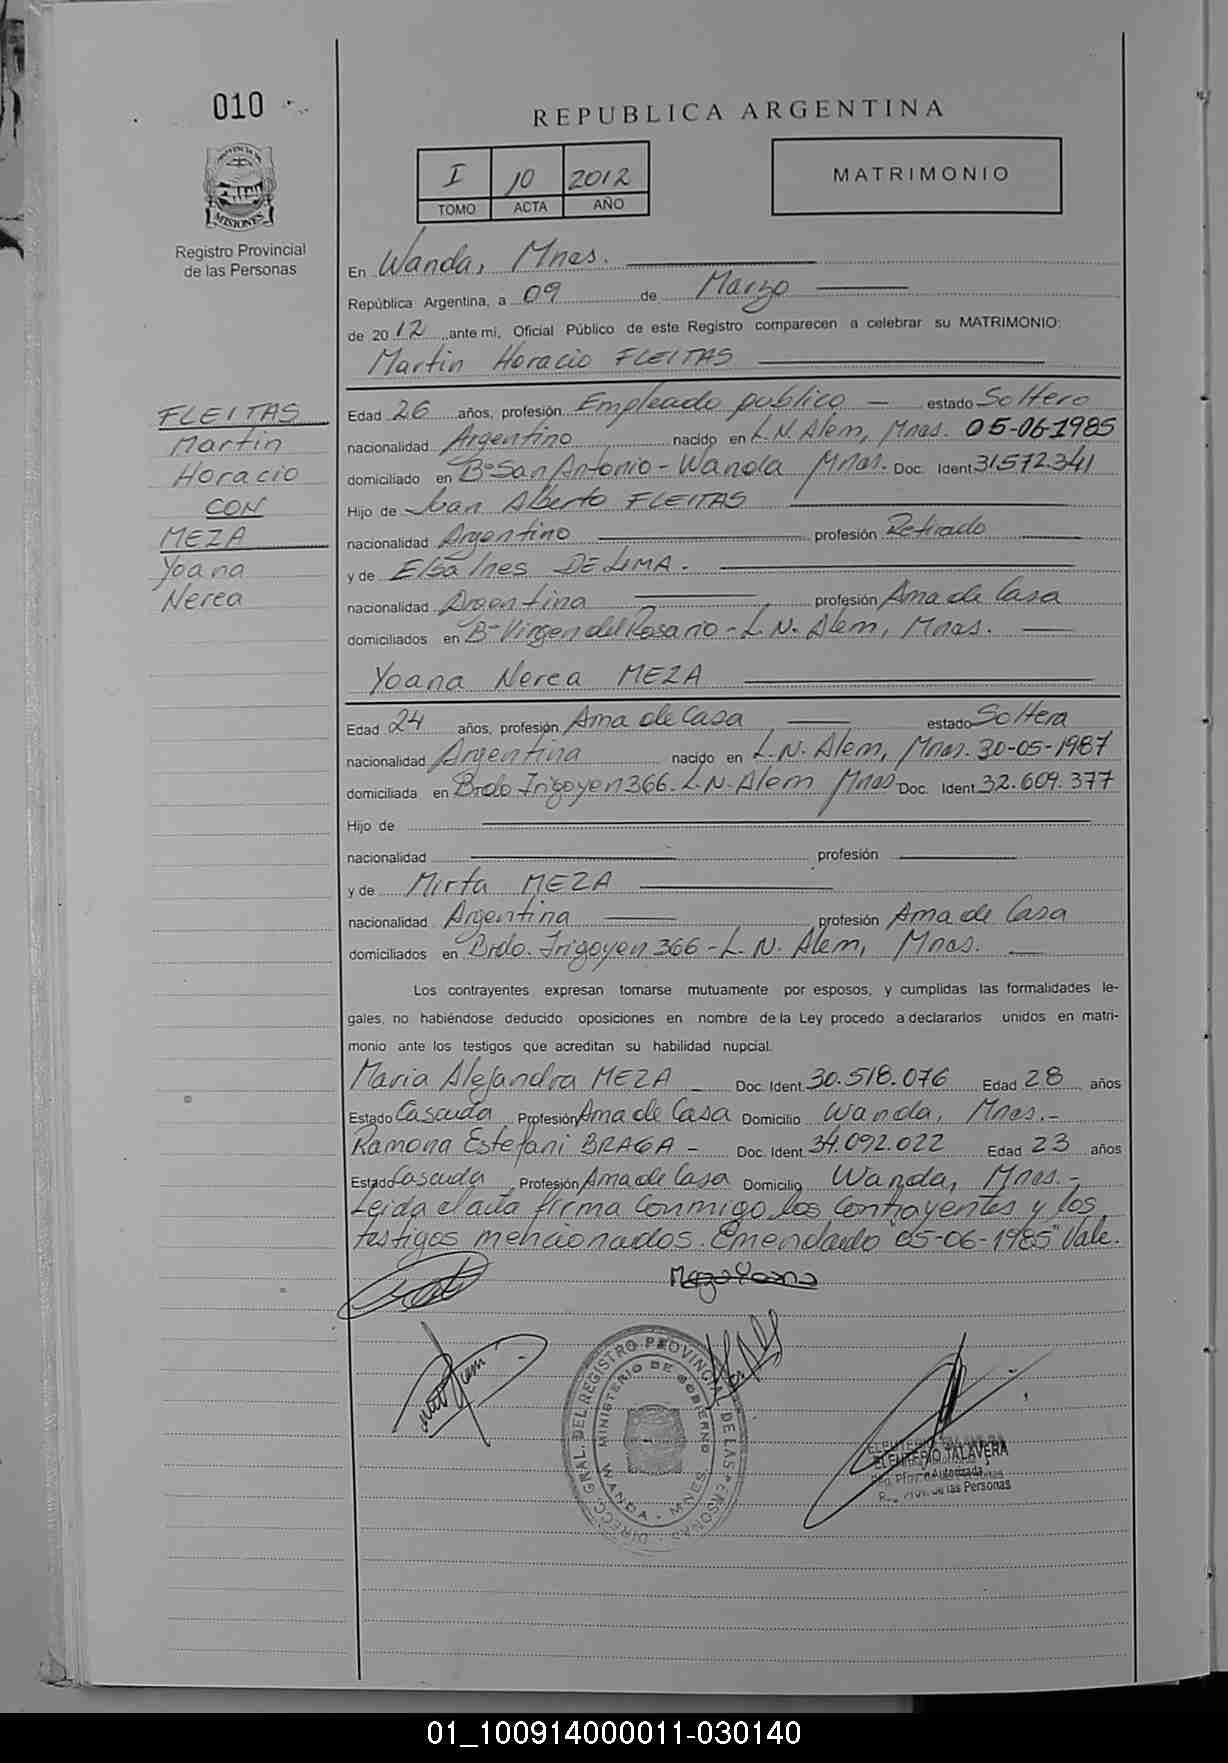 010
REPUBLICA ARGENTINA
I 10 2012
TOMO ACTA AÑO
MATRIMONIO
PROVINCIA DE
MISIONES
Registro Provincial
de las Personas
En Wanda, Mnes.
República Argentina, a 09 de Marzo
de 2012 ante mi, Oficial Público de este Registro comparecen a celebrar su MATRIMONIO:
Martin Horacio FLEITAS
FLEITAS
Martin
Horacio
CON
MEZA
Yoana
Nerea
Edad 26 años, profesión Empleado publico - estado Soltero
nacionalidad Argentino nacido en L.N. Alem, Mnas. 05-06-1985
domiciliado en B° San Antonio - Wanda Mnas. Doc. Ident. 31.572.341
Hijo de Juan Alberto FLEITAS
nacionalidad Argentino profesión Retirado
y de Elsa Ines DE LIMA.
nacionalidad Argentina profesión Ama de Casa
domiciliados en B° Virgen del Rosario - L.N. Alem, Mnas.
Yoana Nerea MEZA
Edad 24 años, profesión Ama de Casa estado Soltera
nacionalidad Argentina nacido en L.N. Alem, Mnas. 30-05-1987
domiciliada en Brdo Irigoyen 366. L.N. Alem Mnas Doc. Ident. 32.609.377
Hijo de
nacionalidad profesión
y de Mirta MEZA
nacionalidad Argentina profesión Ama de Casa
domiciliados en Brdo. Irigoyen 366 - L.N. Alem, Mnas.
Los contrayentes expresan tomarse mutuamente por esposos, y cumplidas las formalidades le-
gales, no habiéndose deducido oposiciones en nombre de la Ley procedo a declararlos unidos en matri-
monio ante los testigos que acreditan su habilidad nupcial.
Maria Alejandra MEZA - Doc. Ident. 30.518.076 Edad 28 años
Estado Casada Profesión Ama de Casa Domicilio Wanda, Mnas.-
Ramona Estefani BRAGA - Doc. Ident. 34.092.022 Edad 23 años
Estado Casada Profesión Ama de Casa Domicilio Wanda, Mnas.-
Leida el acta firma conmigo los contrayentes y los
testigos mencionados. Emendado "05-06-1985" Vale.
Meza Yoana
DIRECC. GRAL. DEL REGISTRO PROVINCIAL DE LAS PERSONAS
MINISTERIO DE GOBIERNO
WANDA - MNES.
ELEUTERIO TALAVERA
Autorizada
de las Personas
01_100914000011-030140